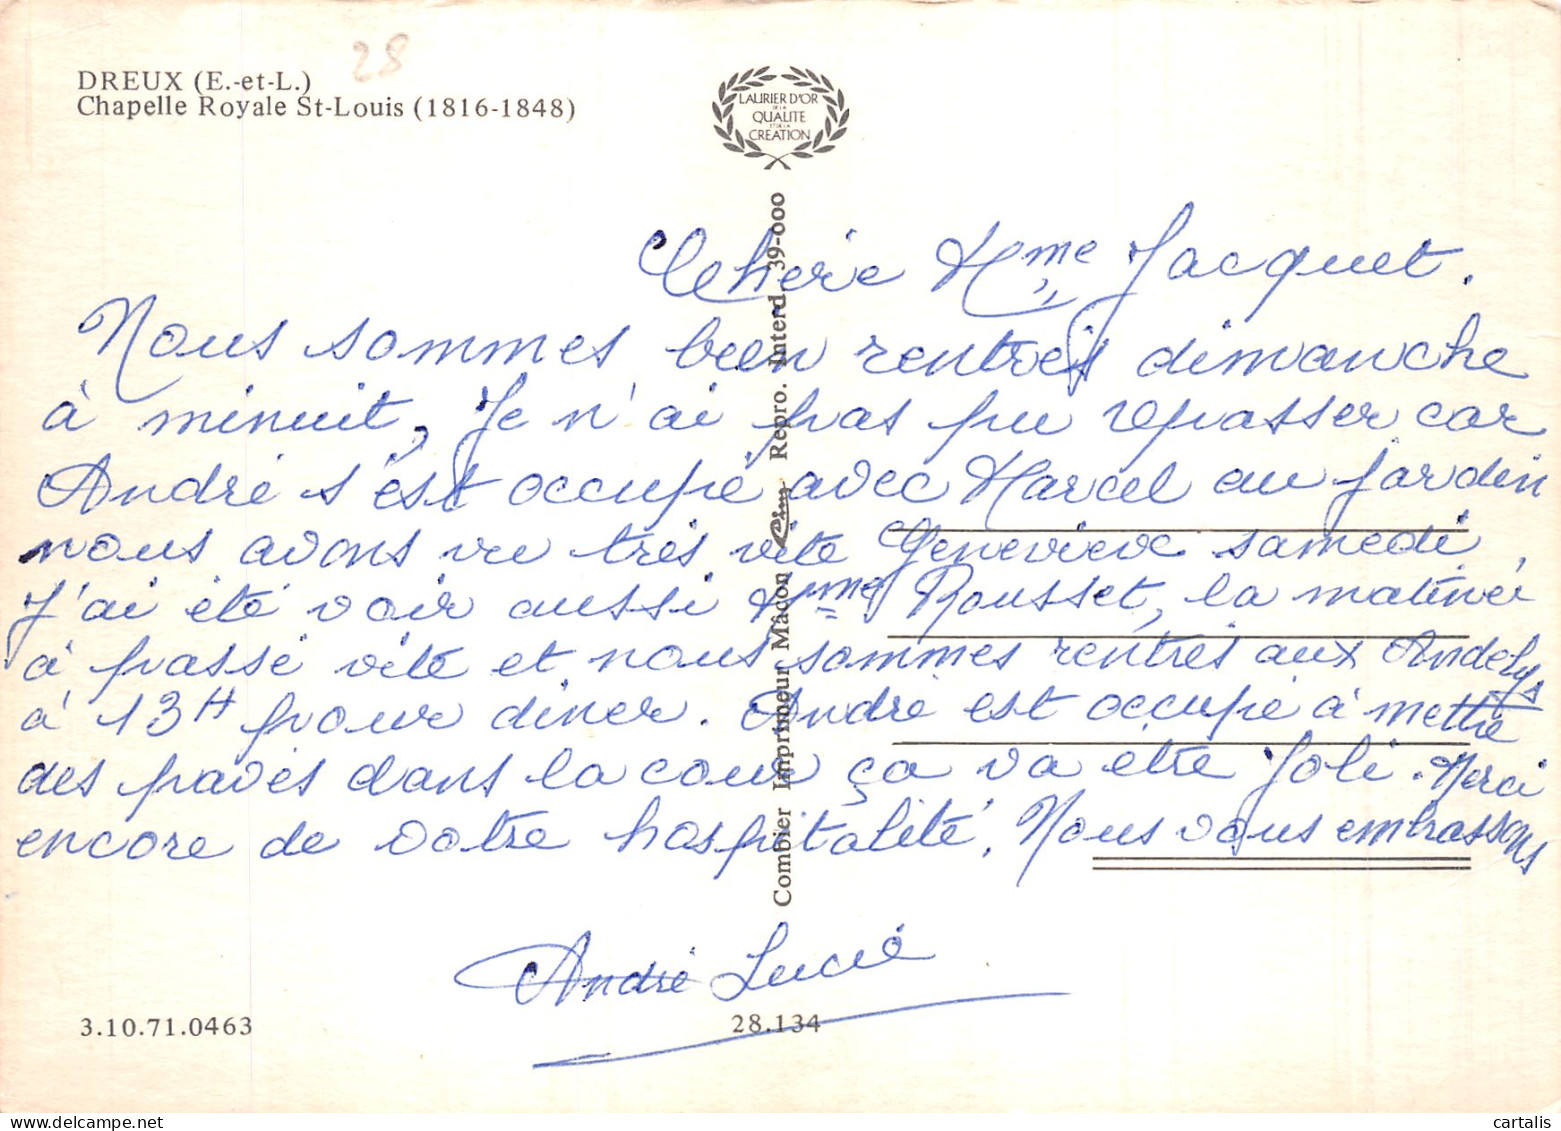 28
DREUX (E.-et-L.)
Chapelle Royale St-Louis (1816-1848)
LAURIER D'OR
DE LA
QUALITE
ET DE LA
CREATION
Combier Imprimeur Mâcon Cim Repro. Interd. 39-000
Chère Mme Jacquet.
Nous sommes bien rentrés dimanche
à minuit, Je n'ai pas pu repasser car
André s'est occupé avec Marcel au jardin
nous avons vu très vite Geneviève samedi,
J'ai été voir aussi Mme Rousset, la matinée
à passé vite et nous sommes rentrés aux Andelys
à 13H pour diner. André est occupé à mettre
des pavés dans la cour ça va être joli. Merci
encore de votre hospitalité. Nous vous embrassons
André Lucie
3.10.71.0463
28.134
cartalis